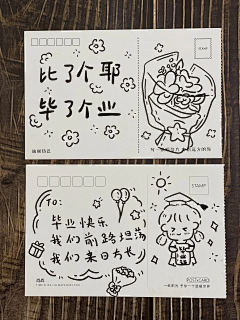 比了个耶
毕了个业
STAMP
To:
毕业快乐
我们前路坦荡
我们来日方长
STAMP
POSTCARD